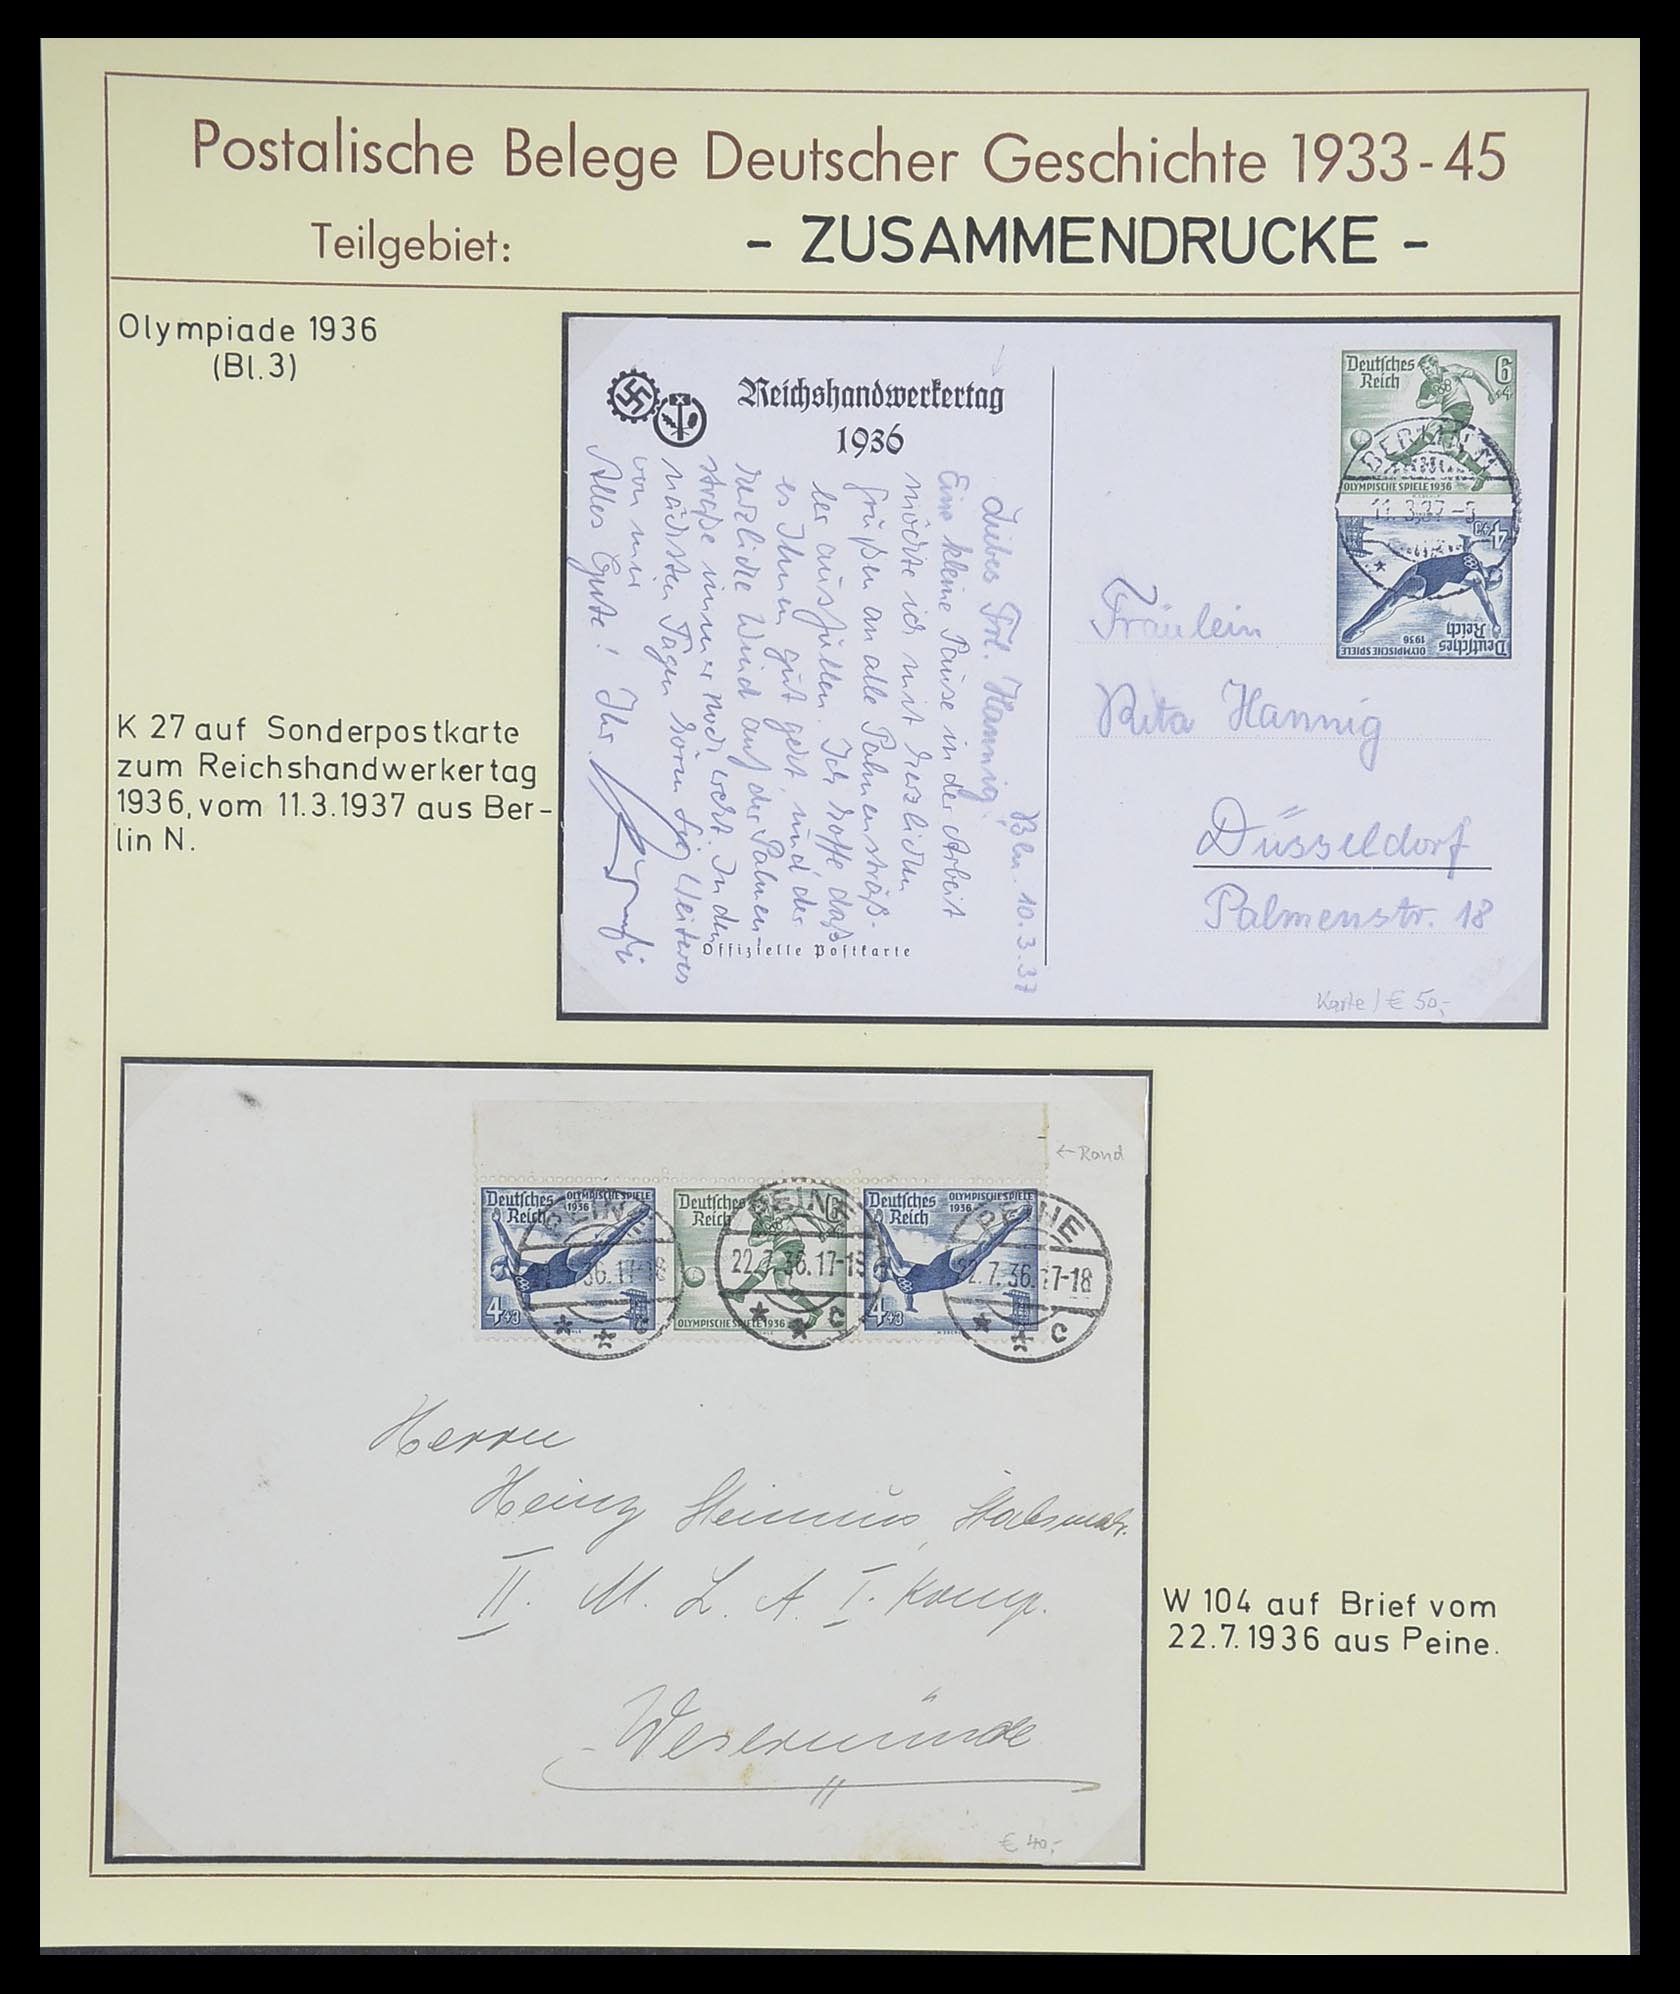 Postalische Belege Deutscher Geschichte 1933-45
Teilgebiet: - ZUSAMMENDRUCKE -
Olympiade 1936
(Bl.3)
K 27 auf Sonderpostkarte
zum Reichshandwerkertag
1936, vom 11.3.1937 aus Ber-
lin N.
Reichshandwerkertag
1936
Bln. 10.3.37
Liebes Frl. Hannig,
Eine kleine Pause in der Arbeit
möchte ich mit herzlichen
Grüßen an alle Palmensträß-
ler ausfüllen. Ich hoffe daß
es Ihnen gut geht, und der
herzliche Wind auf der Palmen-
straße immer noch weht. In den
nächsten Tagen hören Sie Weiteres
von mir
Alles Gute! Ihr
Offizielle Postkarte
Deutsches
Reich
6
+4
OLYMPISCHE SPIELE 1936
BERLIN N
11.3.37
4+3
OLYMPISCHE SPIELE
1936
Deutsches
Reich
Fräulein
Rita Hannig
Düsseldorf
Palmenstr. 18
Karte / € 50,-
← Rand
Deutsches
Reich
OLYMPISCHE SPIELE
1936
4+3
Deutsches
Reich
6
OLYMPISCHE SPIELE 1936
Deutsches
Reich
OLYMPISCHE SPIELE
1936
4+3
PEINE
36.17-18
c
PEINE
22.7.36.17-18
c
PEINE
22.7.36.17-18
c
Herrn
Heinz Steinmüs, Stabsmatr.
II. M. L. A I. Komp.
Wesermünde
€ 40,-
W 104 auf Brief vom
22.7.1936 aus Peine.